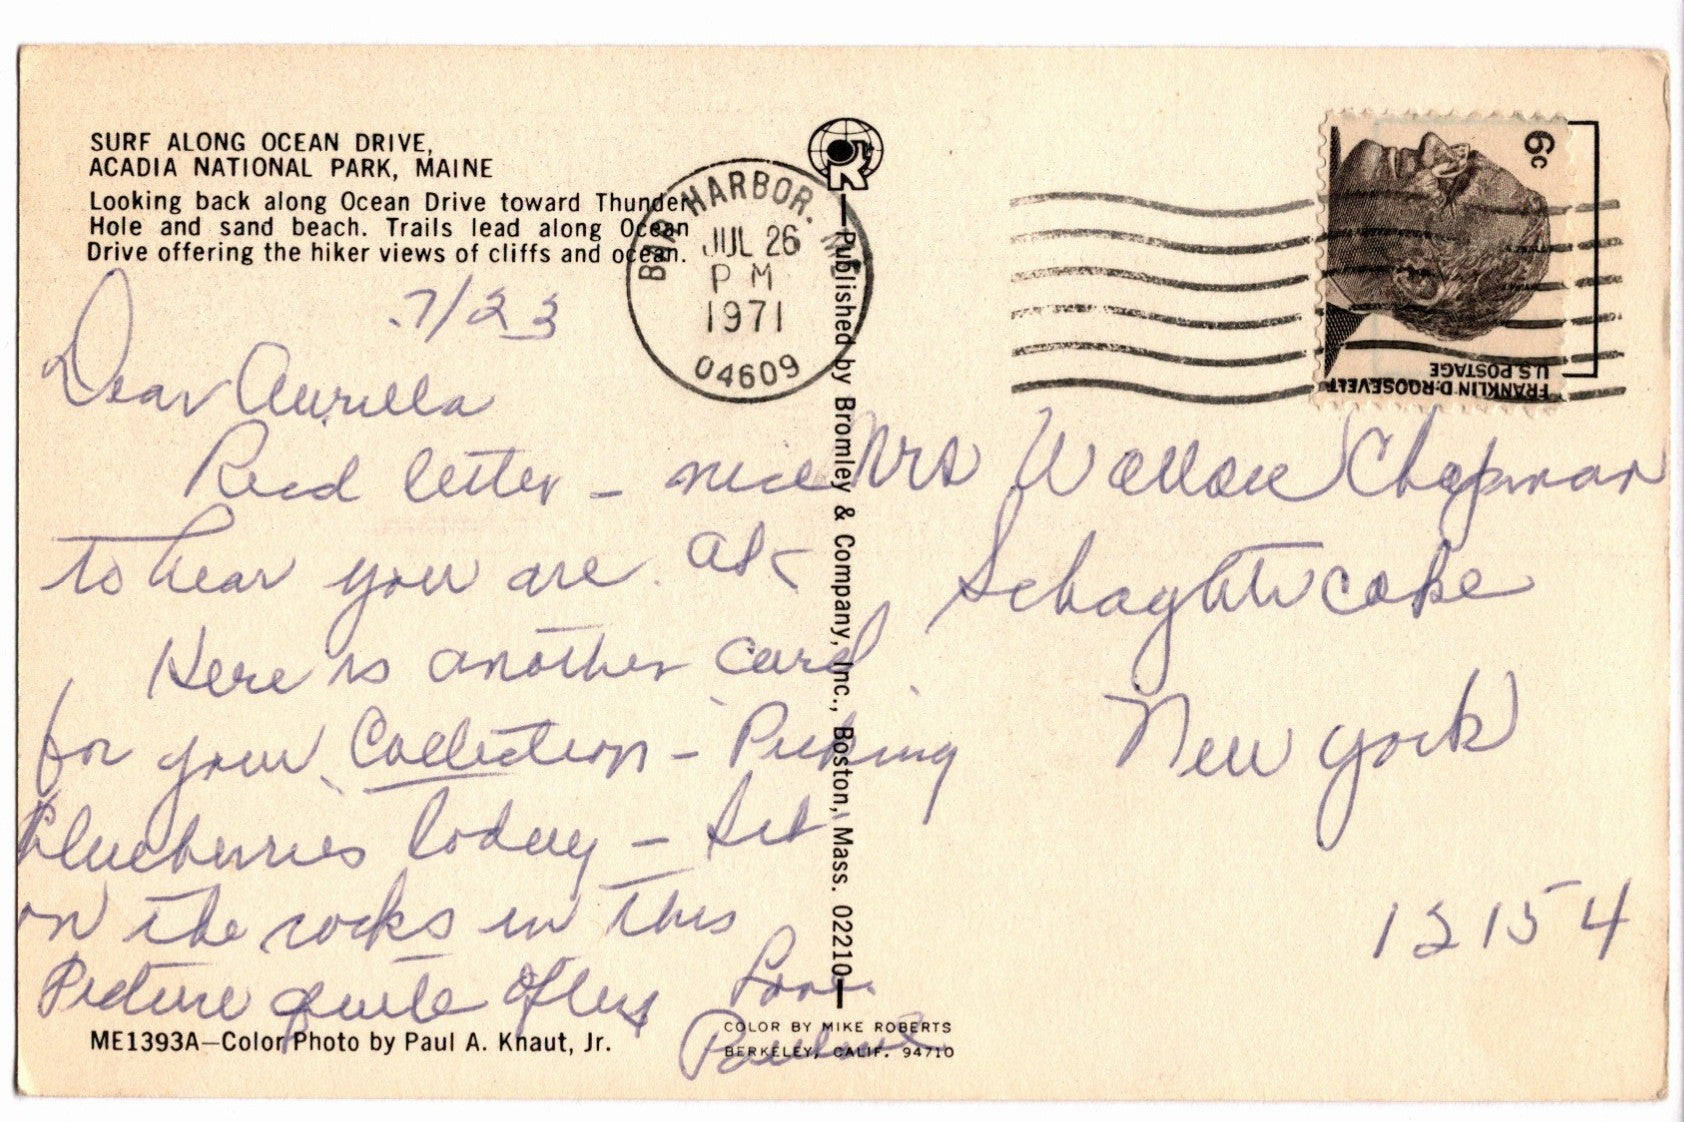 SURF ALONG OCEAN DRIVE,
ACADIA NATIONAL PARK, MAINE
Looking back along Ocean Drive toward Thunder
Hole and sand beach. Trails lead along Ocean
Drive offering the hiker views of cliffs and ocean.
7/23
Dear Aurilla
Recd letter - nice
to hear you are. ok
Here is another card
for your Collection - Picking
blueberries today - Set
on the rocks in this
Picture quite often
Love
Pauline
ME1393A—Color Photo by Paul A. Knaut, Jr.
COLOR BY MIKE ROBERTS
BERKELEY, CALIF. 94710
Published by Bromley & Company, Inc., Boston, Mass. 02210
BAR HARBOR. ME
JUL 26
PM
1971
04609
6c
U.S. POSTAGE
FRANKLIN D. ROOSEVELT
Mrs Wallace Chapman
Schaghticoke
New York
12154